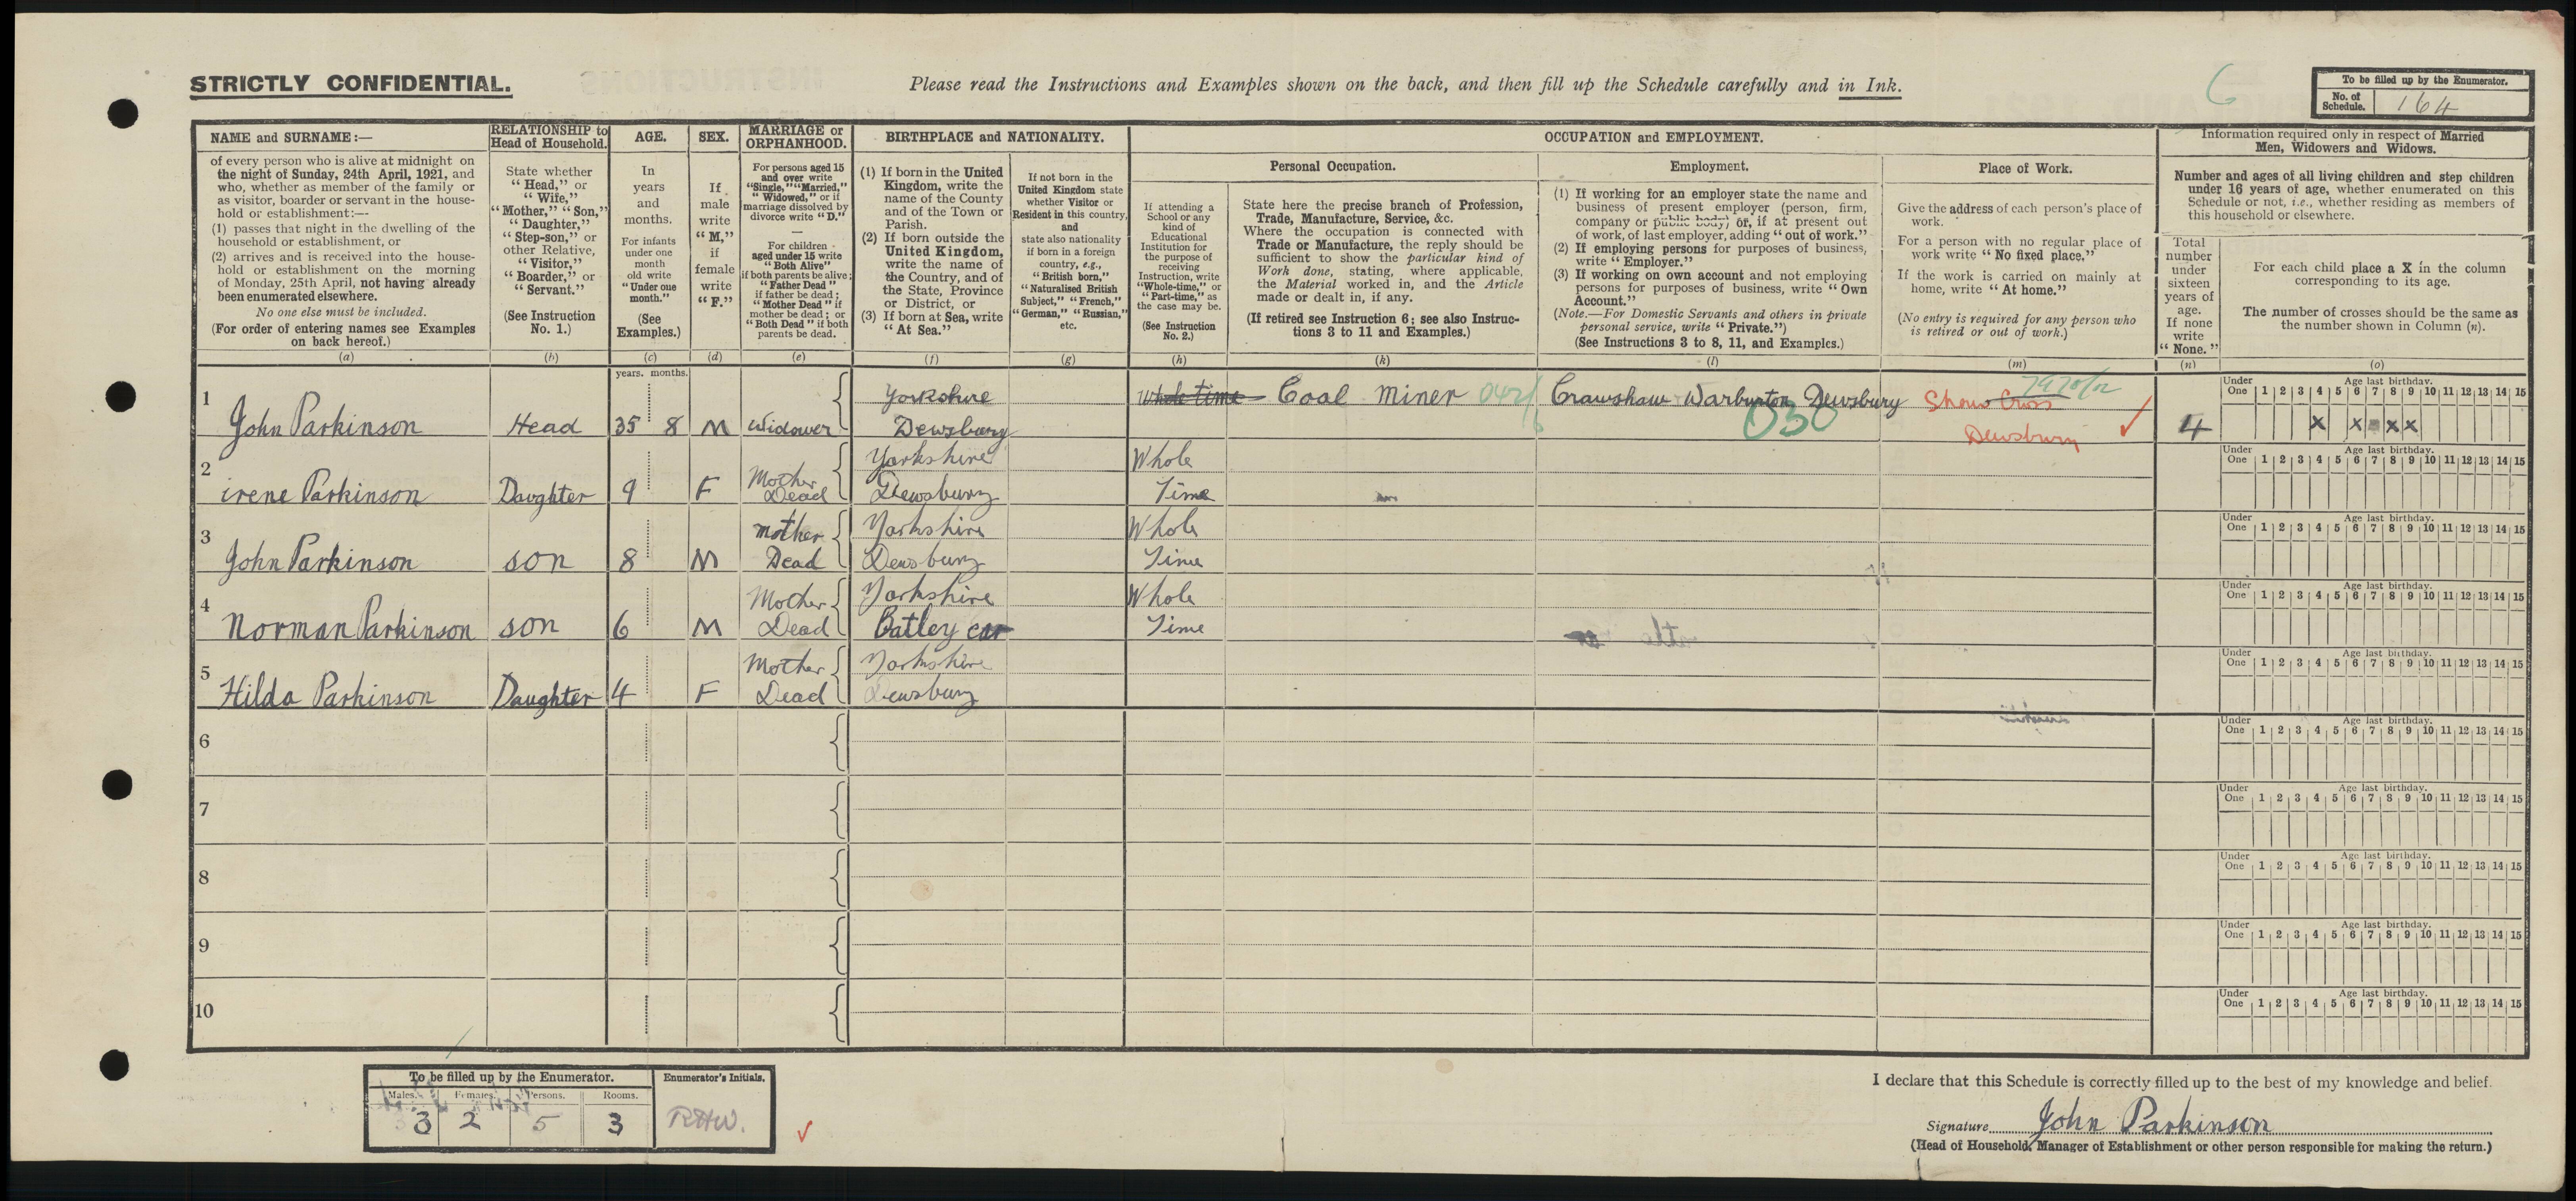 STRICTLY CONFIDENTIAL.
Please read the Instructions and Examples shown on the back, and then fill up the Schedule carefully and in Ink.
6
To be filled up by the Enumerator.
No. of Schedule. 164
NAME and SURNAME:—
of every person who is alive at midnight on
the night of Sunday, 24th April, 1921, and
who, whether as member of the family or
as visitor, boarder or servant in the house-
hold or establishment:—
(1) passes that night in the dwelling of the
household or establishment, or
(2) arrives and is received into the house-
hold or establishment on the morning
of Monday, 25th April, not having already
been enumerated elsewhere.
No one else must be included.
(For order of entering names see Examples
on back hereof.)
(a)
RELATIONSHIP to
Head of Household.
State whether
"Head," or
"Wife,"
"Mother," "Son,"
"Daughter,"
"Step-son," or
other Relative,
"Visitor,"
"Boarder," or
"Servant."
(See Instruction
No. 1.)
(b)
AGE.
In
years
and
months.
For infants
under one
month
old write
"Under one
month."
(See
Examples.)
(c)
SEX.
If
male
write
"M,"
if
female
write
"F."
(d)
MARRIAGE or
ORPHANHOOD.
For persons aged 15
and over write
"Single," "Married,"
"Widowed," or if
marriage dissolved by
divorce write "D."
—
For children
aged under 15 write
"Both Alive"
if both parents be alive;
"Father Dead"
if father be dead;
"Mother Dead" if
mother be dead; or
"Both Dead" if both
parents be dead.
(e)
BIRTHPLACE and NATIONALITY.
(1) If born in the United
Kingdom, write the
name of the County
and of the Town or
Parish.
(2) If born outside the
United Kingdom,
write the name of
the Country, and of
the State, Province
or District, or
(3) If born at Sea, write
"At Sea."
(f)
If not born in the
United Kingdom state
whether Visitor or
Resident in this country,
and
state also nationality
if born in a foreign
country, e.g.,
"British born,"
"Naturalised British
Subject," "French,"
"German," "Russian,"
etc.
(g)
OCCUPATION and EMPLOYMENT.
If attending a
School or any
kind of
Educational
Institution for
the purpose of
receiving
Instruction, write
"Whole-time," or
"Part-time," as
the case may be.
(See Instruction
No. 2.)
(h)
Personal Occupation.
State here the precise branch of Profession,
Trade, Manufacture, Service, &c.
Where the occupation is connected with
Trade or Manufacture, the reply should be
sufficient to show the particular kind of
Work done, stating, where applicable,
the Material worked in, and the Article
made or dealt in, if any.
(If retired see Instruction 6; see also Instruc-
tions 3 to 11 and Examples.)
(k)
Employment.
(1) If working for an employer state the name and
business of present employer (person, firm,
company or public body) or, if at present out
of work, of last employer, adding "out of work."
(2) If employing persons for purposes of business,
write "Employer."
(3) If working on own account and not employing
persons for purposes of business, write "Own
Account."
(Note.—For Domestic Servants and others in private
personal service, write "Private.")
(See Instructions 3 to 8, 11, and Examples.)
(l)
Place of Work.
Give the address of each person's place of
work.
For a person with no regular place of
work write "No fixed place."
If the work is carried on mainly at
home, write "At home."
(No entry is required for any person who
is retired or out of work.)
(m)
Information required only in respect of Married
Men, Widowers and Widows.
Number and ages of all living children and step children
under 16 years of age, whether enumerated on this
Schedule or not, i.e., whether residing as members of
this household or elsewhere.
Total
number
under
sixteen
years of
age.
If none
write
"None."
(n)
For each child place a X in the column
corresponding to its age.
The number of crosses should be the same as
the number shown in Column (n).
(o)
years. months.
1 John Parkinson Head 35 8 M Widower Yorkshire Dewsbury Whole time Coal Miner Crawshaw Warburton Dewsbury 030 Shaw Cross Dewsbury 4
Under One 1 2 3 4 5 6 7 8 9 10 11 12 13 14 15
Age last birthday.
X X X X
2 irene Parkinson Daughter 9 F Mother Dead Yorkshire Dewsbury Whole Time
Under One 1 2 3 4 5 6 7 8 9 10 11 12 13 14 15
Age last birthday.
3 John Parkinson son 8 M mother Dead Yorkshire Dewsbury Whole Time
Under One 1 2 3 4 5 6 7 8 9 10 11 12 13 14 15
Age last birthday.
4 Norman Parkinson son 6 M Mother Dead Yorkshire Batley car Whole Time
Under One 1 2 3 4 5 6 7 8 9 10 11 12 13 14 15
Age last birthday.
5 Hilda Parkinson Daughter 4 F Mother Dead Yorkshire Dewsbury
Under One 1 2 3 4 5 6 7 8 9 10 11 12 13 14 15
Age last birthday.
6
Under One 1 2 3 4 5 6 7 8 9 10 11 12 13 14 15
Age last birthday.
7
Under One 1 2 3 4 5 6 7 8 9 10 11 12 13 14 15
Age last birthday.
8
Under One 1 2 3 4 5 6 7 8 9 10 11 12 13 14 15
Age last birthday.
9
Under One 1 2 3 4 5 6 7 8 9 10 11 12 13 14 15
Age last birthday.
10
Under One 1 2 3 4 5 6 7 8 9 10 11 12 13 14 15
Age last birthday.
To be filled up by the Enumerator.
Males. Females. Persons. Rooms.
3 2 5 3
Enumerator's Initials.
RHW.
I declare that this Schedule is correctly filled up to the best of my knowledge and belief.
Signature John Parkinson
(Head of Household, Manager of Establishment or other person responsible for making the return.)